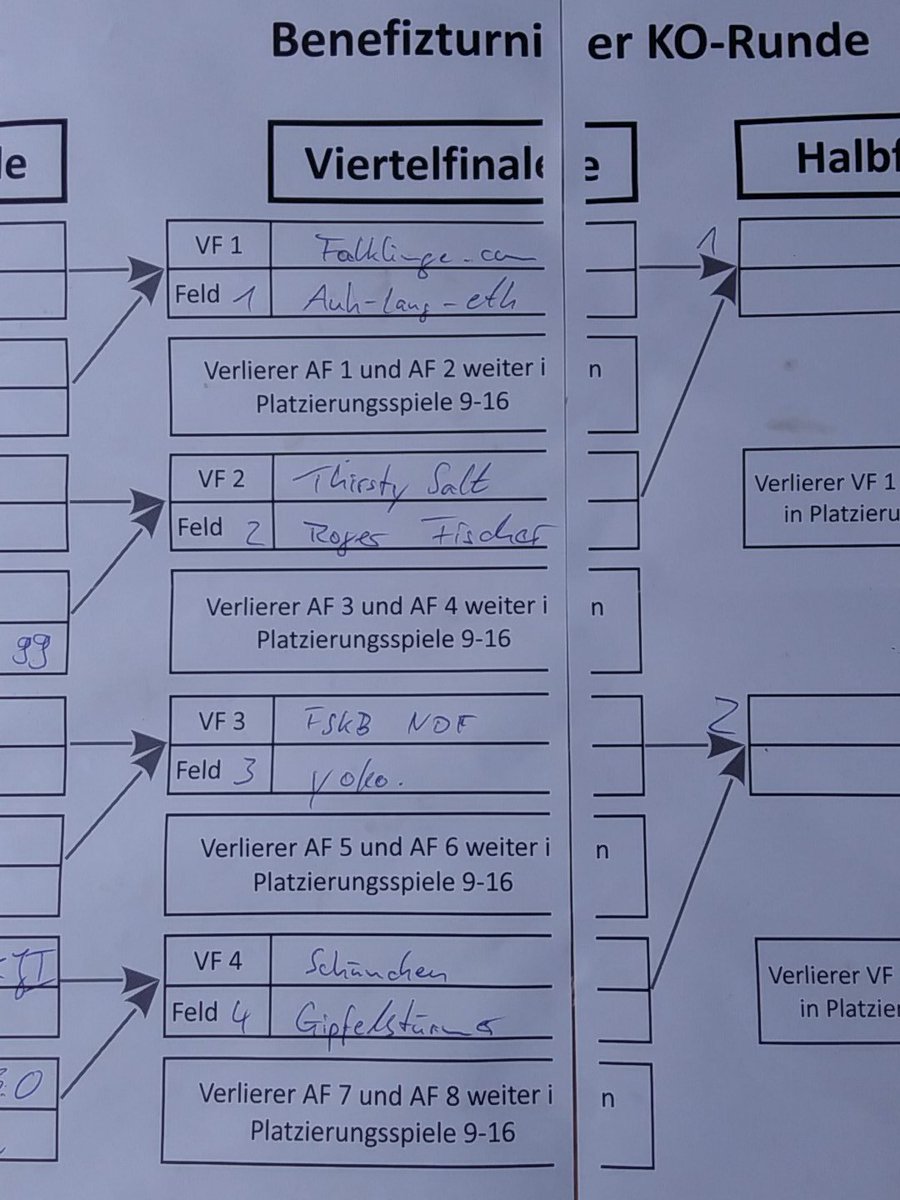 Benefizturni er KO-Runde
le
Viertelfinale e
Halbf
VF 1 Falklinge.com
Feld 1 Auh-Lang-eth
1
Verlierer AF 1 und AF 2 weiter i n
Platzierungsspiele 9-16
VF 2 Thirsty Salt
Feld 2 Roger Fischer
Verlierer VF 1
in Platzieru
Verlierer AF 3 und AF 4 weiter i n
Platzierungsspiele 9-16
99
VF 3 FSKB NDF
Feld 3 Yoko.
2
Verlierer AF 5 und AF 6 weiter i n
Platzierungsspiele 9-16
VF 4 Schünchen
Feld 4 Gipfelstürmer
Verlierer VF
in Platzier
Verlierer AF 7 und AF 8 weiter i n
Platzierungsspiele 9-16